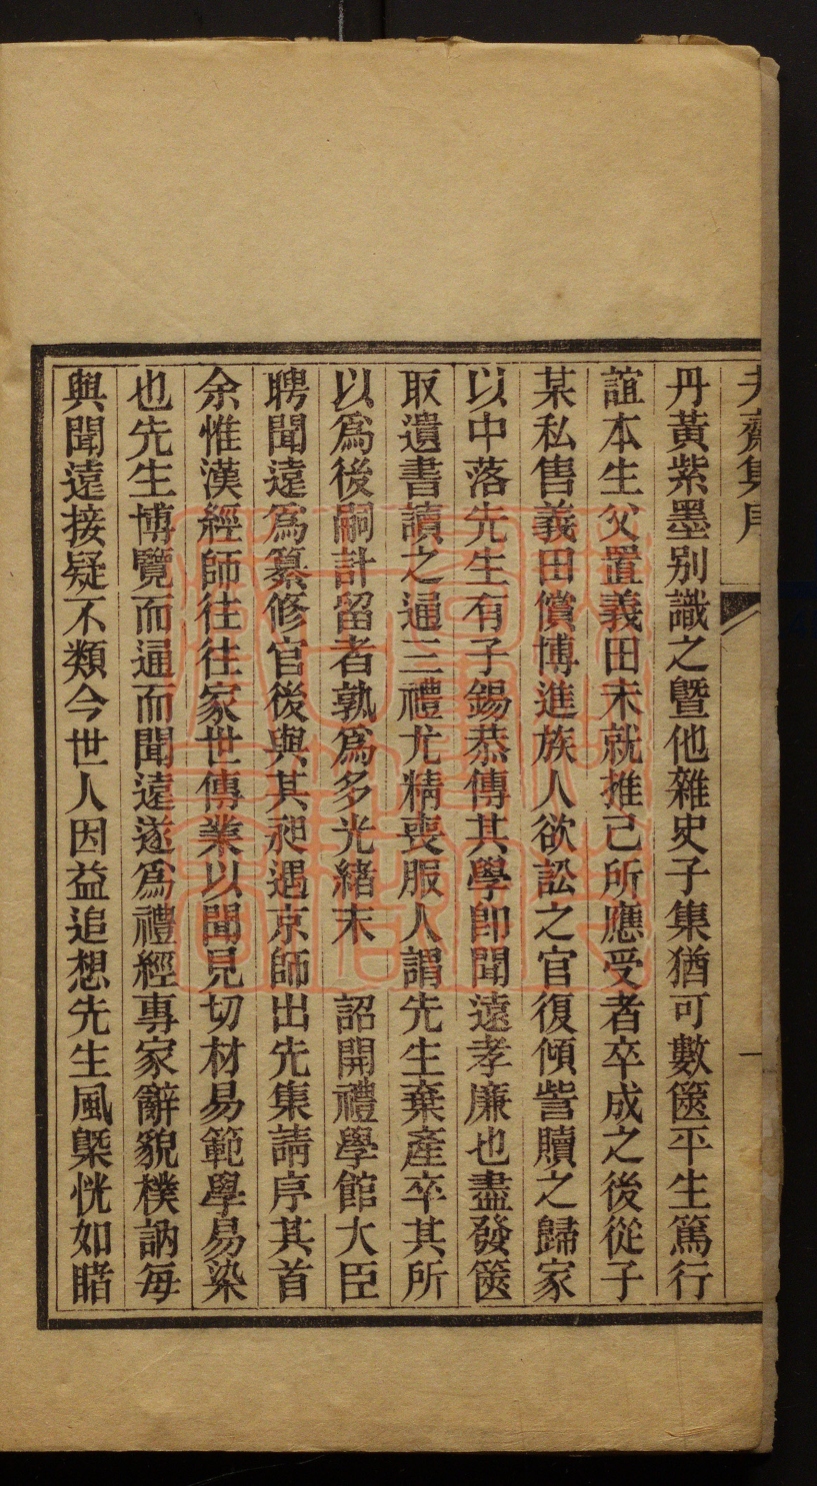 齋集序
一
丹黃紫墨別識之曁他雜史子集猶可數篋平生篤行
誼本生父置義田未就推己所應受者卒成之後從子
某私售義田償博進族人欲訟之官復傾訾贖之歸家
以中落先生有子錫恭傳其學卽聞遠孝廉也盡發篋
取遺書讀之通三禮尤精喪服人謂先生棄產卒其所
以爲後嗣計留者孰爲多光緒末　詔開禮學館大臣
聘聞遠爲纂修官後與其昶遇京師出先集請序其首
余惟漢經師往往家世傳業以聞見切材易範學易染
也先生博覽而通而聞遠遂爲禮經專家辭貌樸訥每
與聞遠接疑不類今世人因益追想先生風槩恍如睹